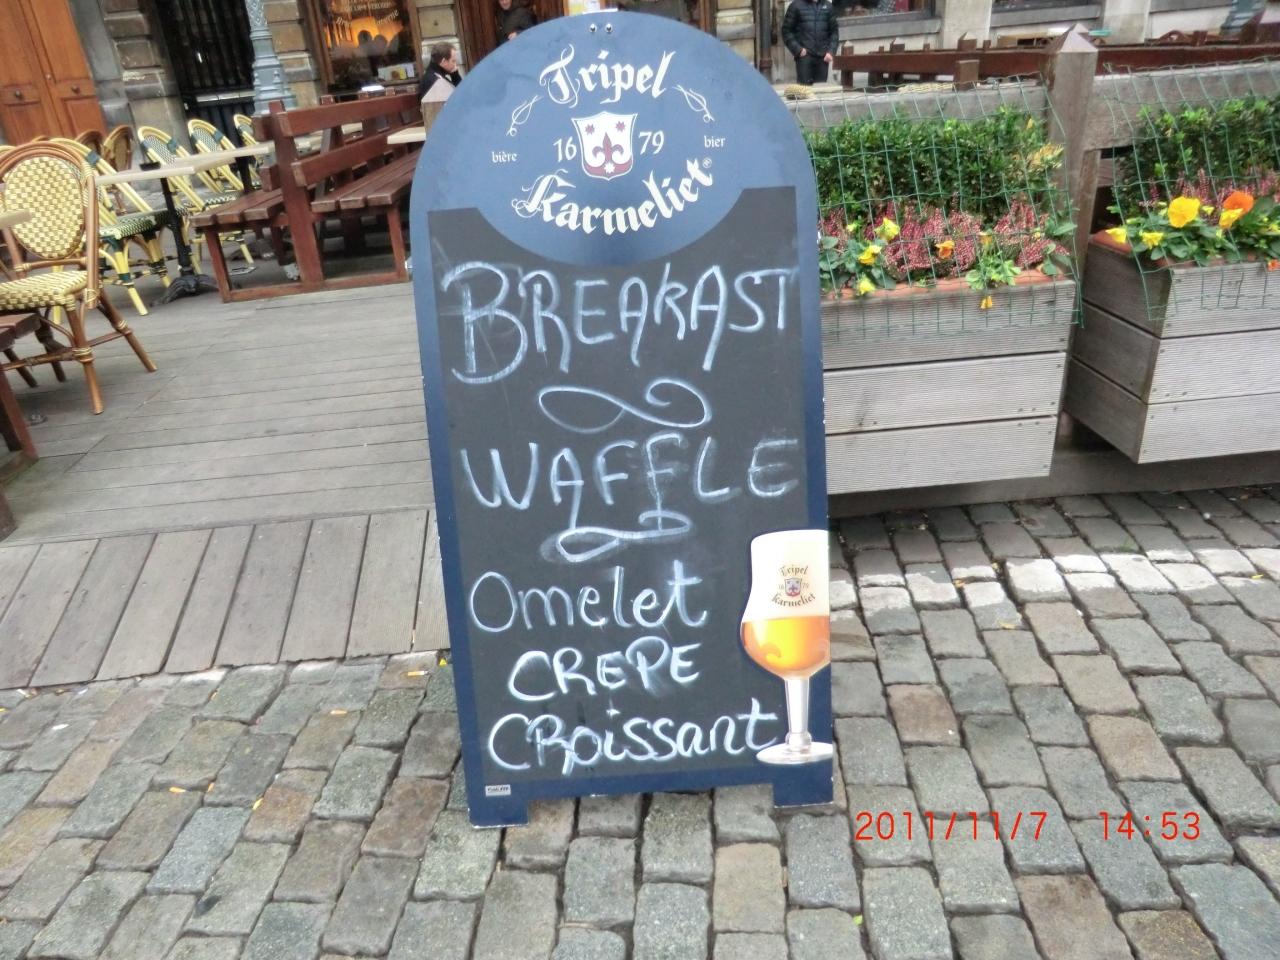 Tripel
bière 16 79 bier
Karmeliet®
BREAKAST
WAFFLE
Omelet
CREPE
CROissant
Tripel
Karmeliet
2011/11/7 14:53